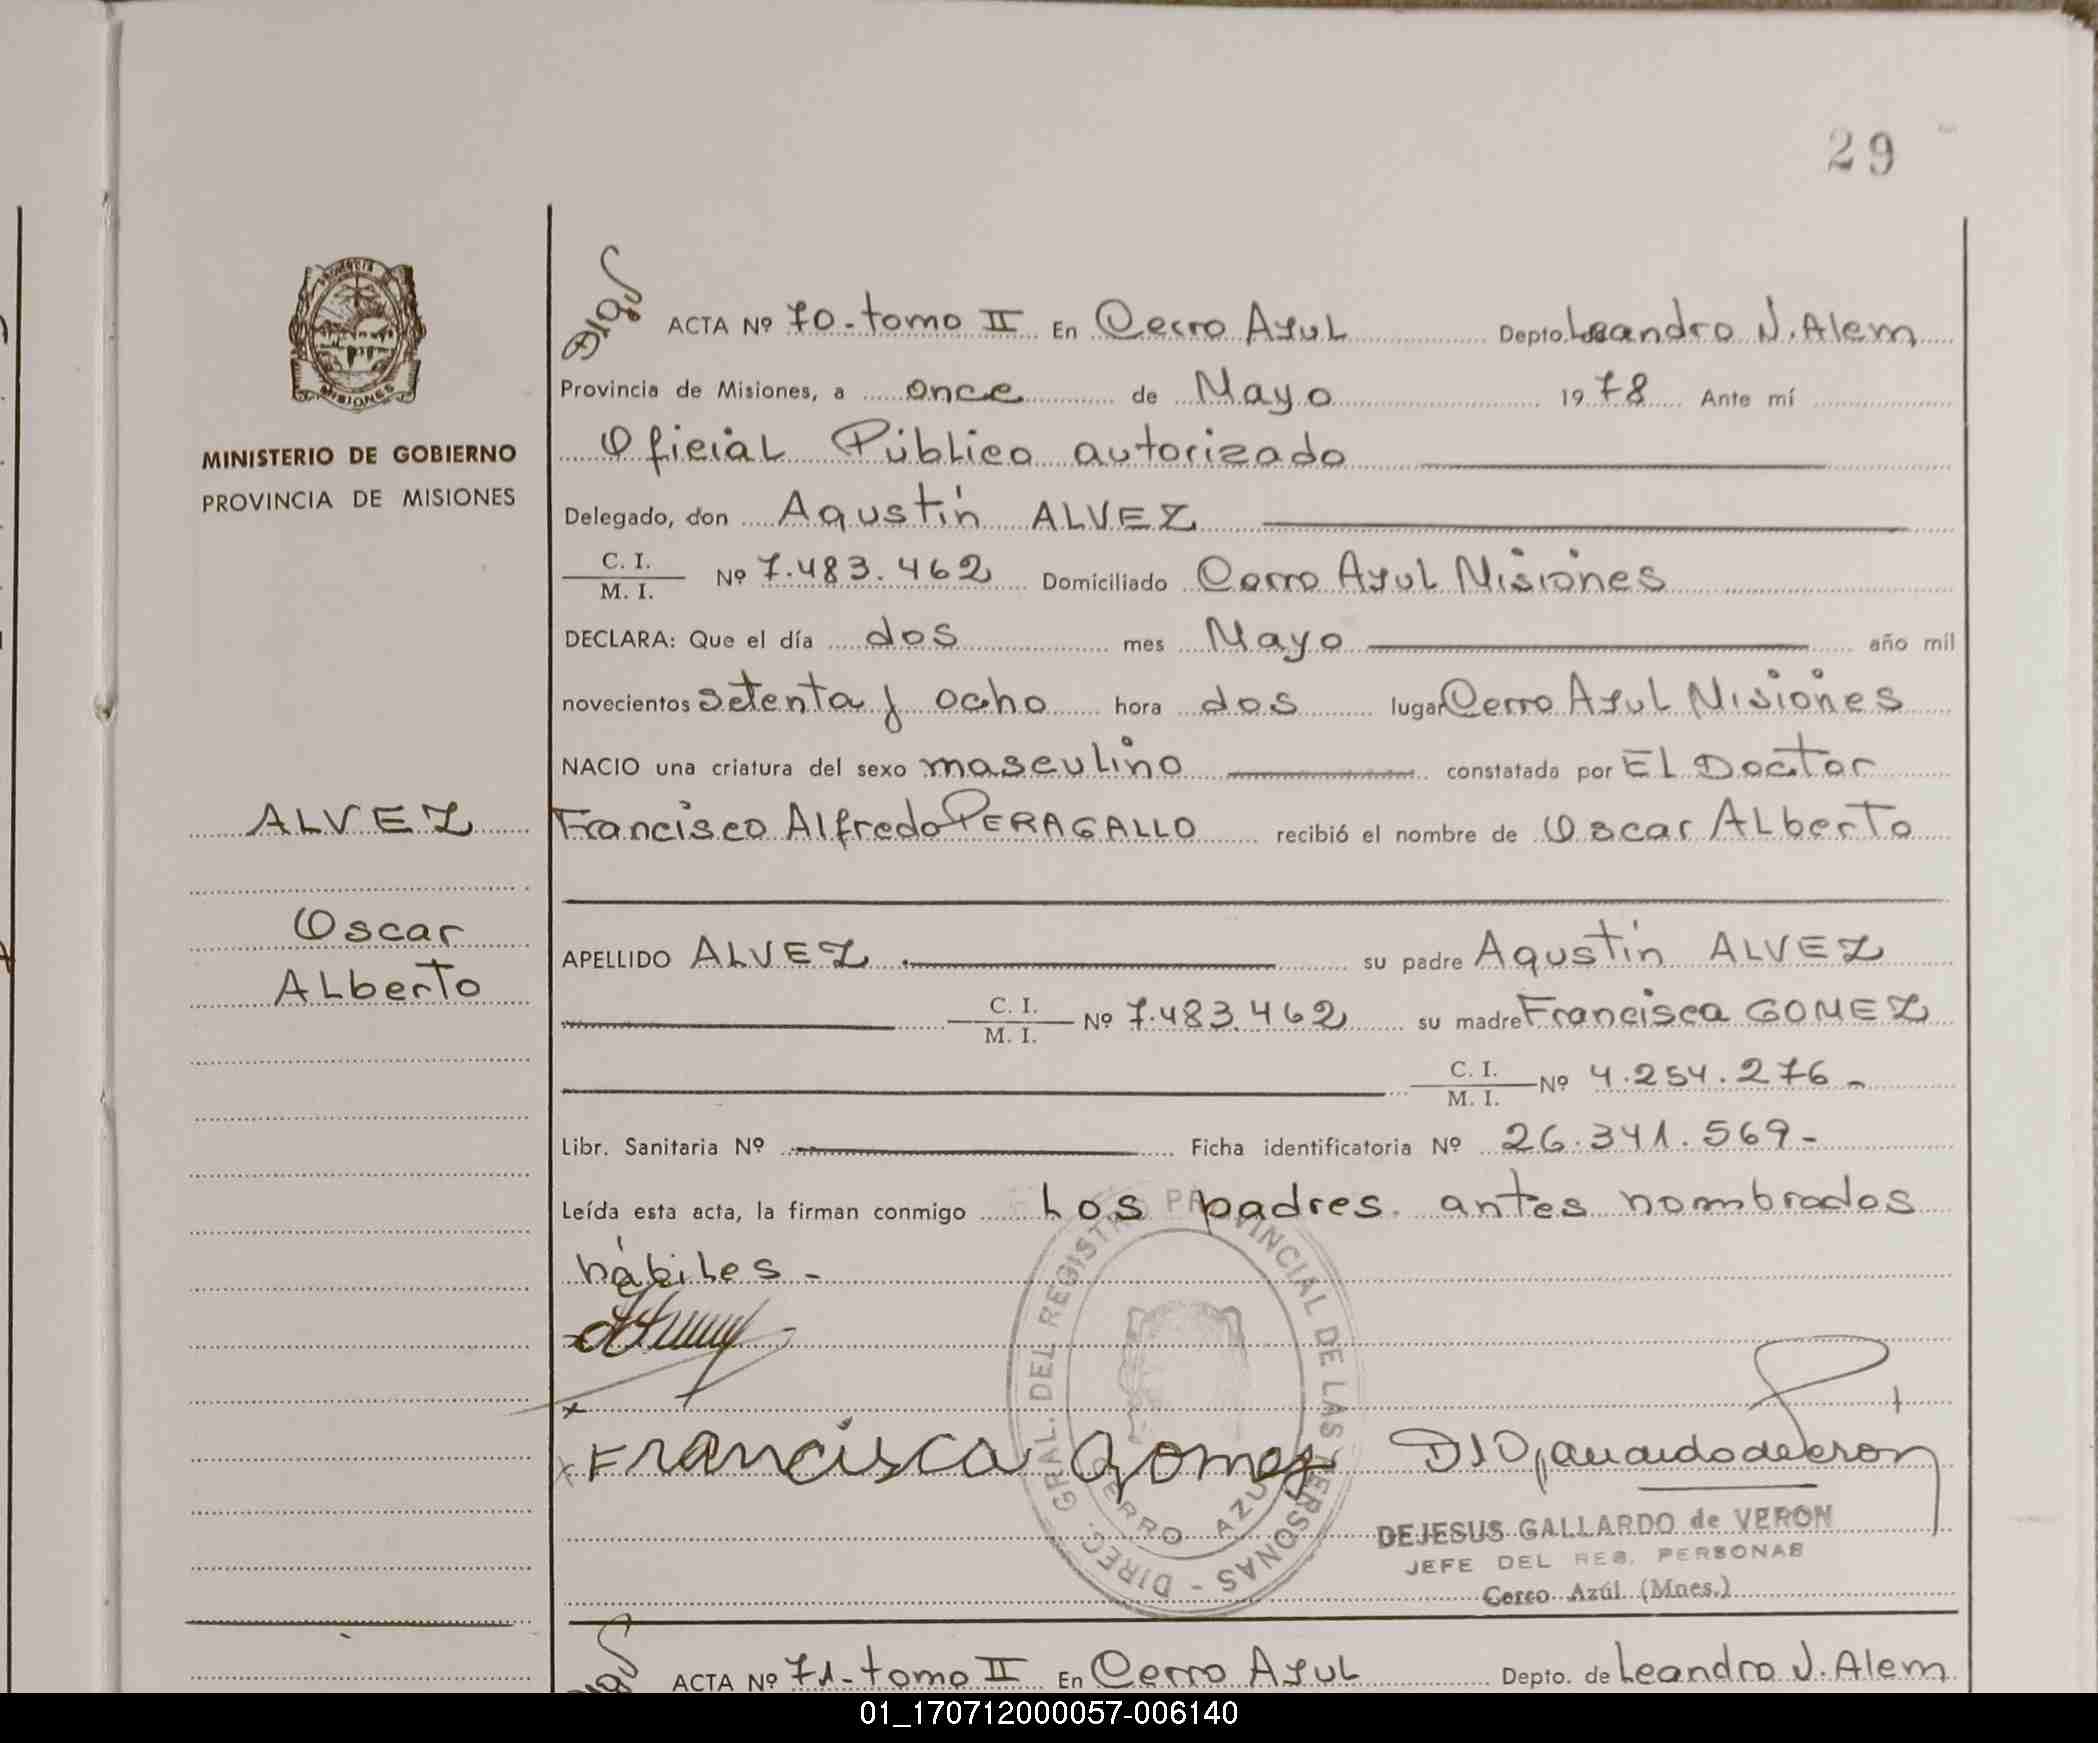 29
ACTA Nº 70-tomo II En Cerro Azul Depto. de Leandro N. Alem
Provincia de Misiones, a once de Mayo 1978 Ante mí
Oficial Público autorizado
MINISTERIO DE GOBIERNO
PROVINCIA DE MISIONES
Delegado, don Agustín ALVEZ
C. I. / M. I. Nº 7.483.462 Domiciliado Cerro Azul Misiones
DECLARA: Que el día dos mes Mayo año mil
novecientos setenta y ocho hora dos lugar Cerro Azul Misiones
NACIO una criatura del sexo masculino constatada por El Doctor
ALVEZ
Francisco Alfredo PERAGALLO recibió el nombre de Oscar Alberto
Oscar
Alberto
APELLIDO ALVEZ su padre Agustín ALVEZ
C. I. / M. I. Nº 7.483.462 su madre Francisca GOMEZ
C. I. / M. I. Nº 4.254.276-
Libr. Sanitaria Nº Ficha identificatoria Nº 26.341.569-
Leída esta acta, la firman conmigo Los padres antes nombrados
hábiles-
Francisca Gomez
DIREC. GRAL. DEL REGISTRO PROVINCIAL DE LAS PERSONAS -
CERRO AZUL
DEJESUS GALLARDO de VERON
JEFE DEL REG. PERSONAS
Cerro Azúl (Mnes.)
ACTA Nº 71-tomo II En Cerro Azul Depto. de Leandro N. Alem
01_170712000057-006140